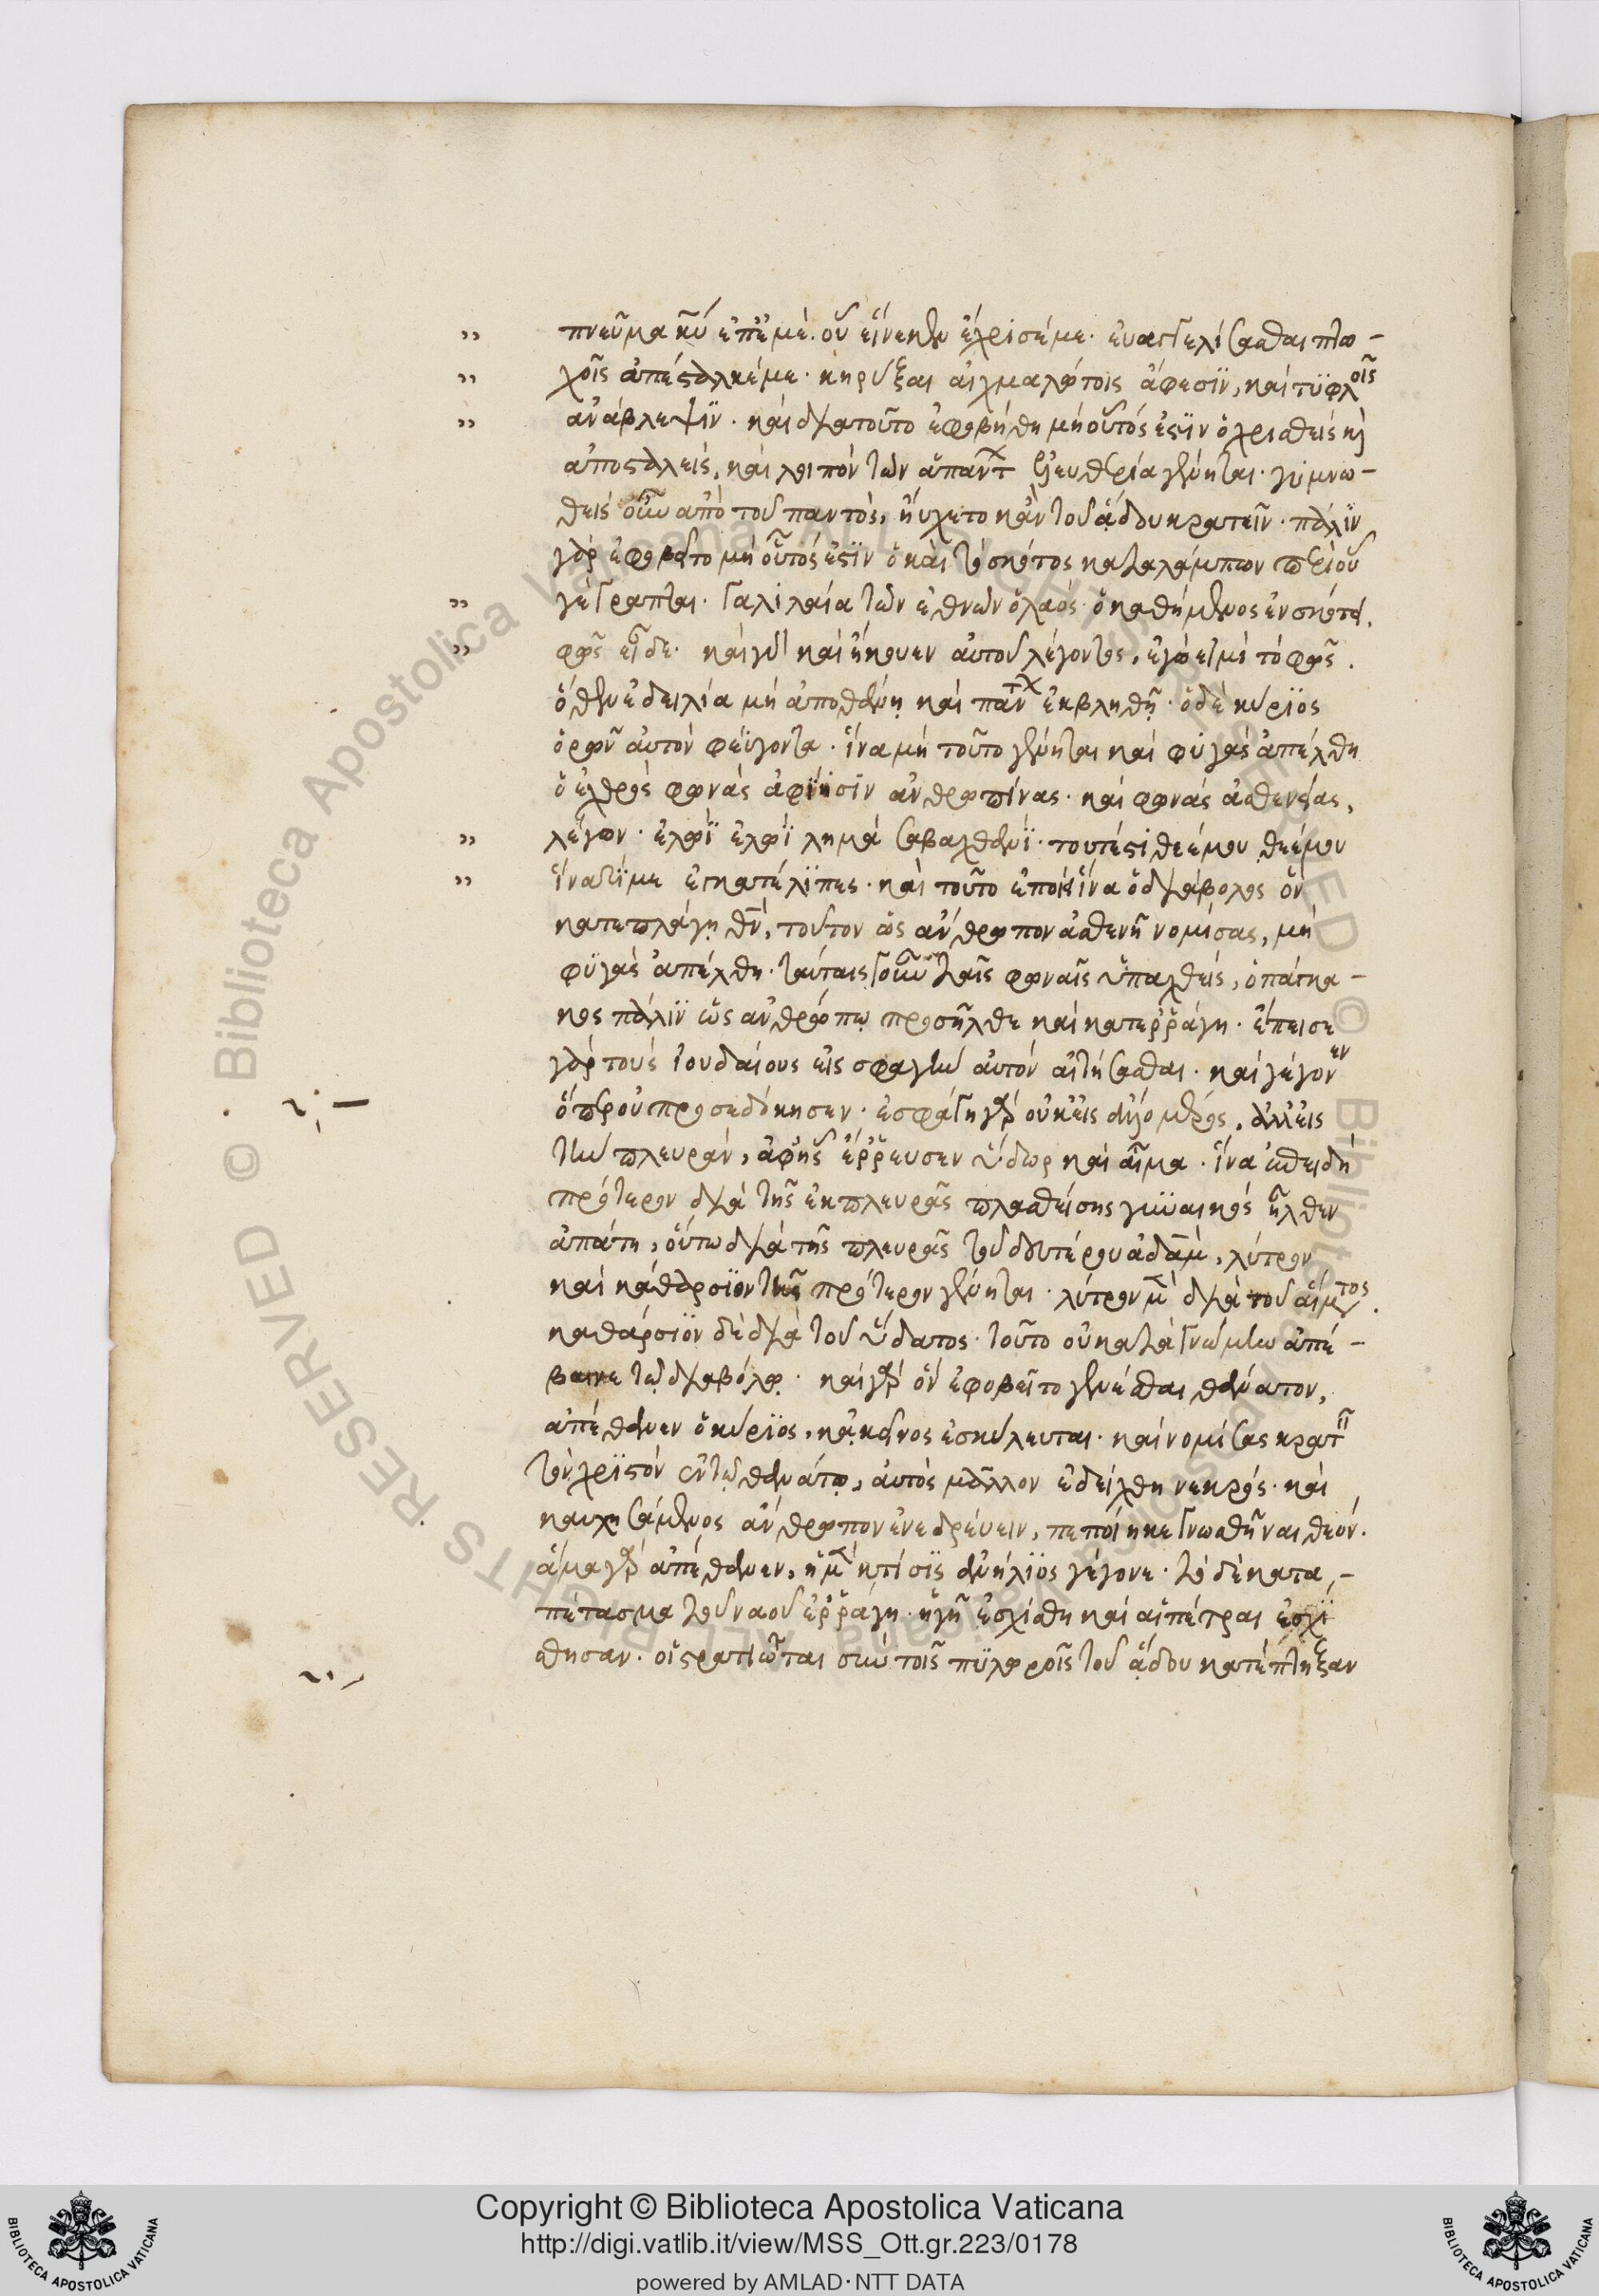 πνεῦμα κῡ ἐπ' ἐμέ· οὗ εἵνεκεν ἔχρισέ με· εὐαγγελίσασθαι πτω-
χοῖς ἀπέσταλκέ με· κηρύξαι αἰχμαλώτοις ἄφεσϊν, καὶ τϋφλοῖς
ἀνάβλεψϊν· καὶ διατοῦτο ἐφοβήθη μὴ οὗτός ἐστϊν ὁ χρισθεὶς κỳ
ἀποσταλεὶς, καὶ λοιπὸν τῶν ἁπάντ ἐλευθερία γένηται· γυμνω-
θεὶς οὖν ἀπὸ τοῦ παντὸς, ηὔχετο κἂν τοῦ ᾅδου κρατεῖν· πάλϊν
γὰρ ἐφοβεῖτο μὴ οὗτός ἐστϊν ὁ καὶ τὸ σκότος καταλάμπων περὶ οὗ
γέγραπται· Γαλιλαία τῶν ἐθνῶν ὁ λαός· ὁ καθήμενος ἐν σκότει,
φῶς εἶδε· καὶ γὰρ καὶ ἤκουεν αὐτοῦ λέγοντος, ἐγώ εἰμι τὸ φῶς.
ὅθεν ἐδειλία μὴ ἀποθάνῃ καὶ πανταχ ἐκβληθῇ· ὁ δὲ κύρϊος
ὁρῶν αὐτὸν φεύγοντα· ἵνα μὴ τοῦτο γένηται καὶ φϋγὰς ἀπέλθη
ὁ ἐχθρὸς φωνὰς ἀφίησϊν ἀνθρωπίνας· καὶ φωνὰς ἀσθενείας,
λέγων· ἐλωῒ ἐλωῒ λημὰ σαβαχθανΐ· τουτέστι θεέ μου θεέ μου
ἵνατί με ἐγκατέλϊπες· καὶ τοῦτο ἐποίει ἵνα ὁ διάβολος ὃν
κατεπλάγη θν̄, τοῦτον ὡς ἄνθρωπον ἀσθενῆ νομίσας, μὴ
φϋγὰς ἀπέλθη· ταύταις γοῦν ταῖς φωναῖς ὑπαχθεὶς, ὁ πάγκα-
κος πάλϊν ὡς ἀνθρώπῳ προσῆλθε καὶ κατερράγη· ἔπεισε
γὰρ τοὺς ἰουδαίους εἰς σφαγὴν αὐτὸν αἰτήσασθαι· καὶ γέγονεν
ὅπερ οὐ προσεδόκησεν· ἐσφάγη γὰρ οὐκ εἰς ἄλλο μέρος, ἀλλ' εἰς
τὴν πλευρὰν, ἀφ' ἧς ἔρρευσεν ὕδωρ καὶ αἷμα· ἵνα ἐπειδὴ
πρότερον διὰ τῆς ἐκ πλευρᾶς πλασθείσης γυναικὸς ἦλθεν
ἀπάτη, οὕτω διὰ τῆς πλευρᾶς τοῦ δευτέρου ἀδὰμ, λύτρον
καὶ καθάρσϊον τῆς πρότερον γένηται· λύτρον μ̄ διὰ τοῦ αἵματος.
καθάρσϊον δὲ διὰ τοῦ ὕδατος· τοῦτο οὐ κατὰ γνώμην ἀπέ-
βαινε τῷ διαβόλῳ· καὶ γὰρ ὃν ἐφοβεῖτο γενέσθαι θάνατον,
ἀπέθανεν ὁ κύρϊος, κἀκεῖνος ἐσκύλευται· καὶ νομίσας κρατεῖ
τὸν χρϊστὸν ἐν τῷ θανάτῳ, αὐτὸς μᾶλλον ἐδείχθη νεκρός· καὶ
καυχησάμενος ἄνθρωπον ἐνεδρεύειν, πεποίηκε γνωσθῆναι θεόν.
ἅμα γὰρ ἀπέθανεν, ἡ μ̄ κτίσϊς ἀνήλϊος γέγονε· τὸ δὲ κατα-
πέτασμα τοῦ ναοῦ ἐρράγη· ἡ γῆ ἐσχίσθη καὶ αἱ πέτραι ἐσχΐ
σθησαν· οἱ στρατιῶται σὺν τοῖς πϋλωροῖς τοῦ ᾅδου κατέπτηξαν
Copyright © Biblioteca Apostolica Vaticana
http://digi.vatlib.it/view/MSS_Ott.gr.223/0178
powered by AMLAD·NTT DATA